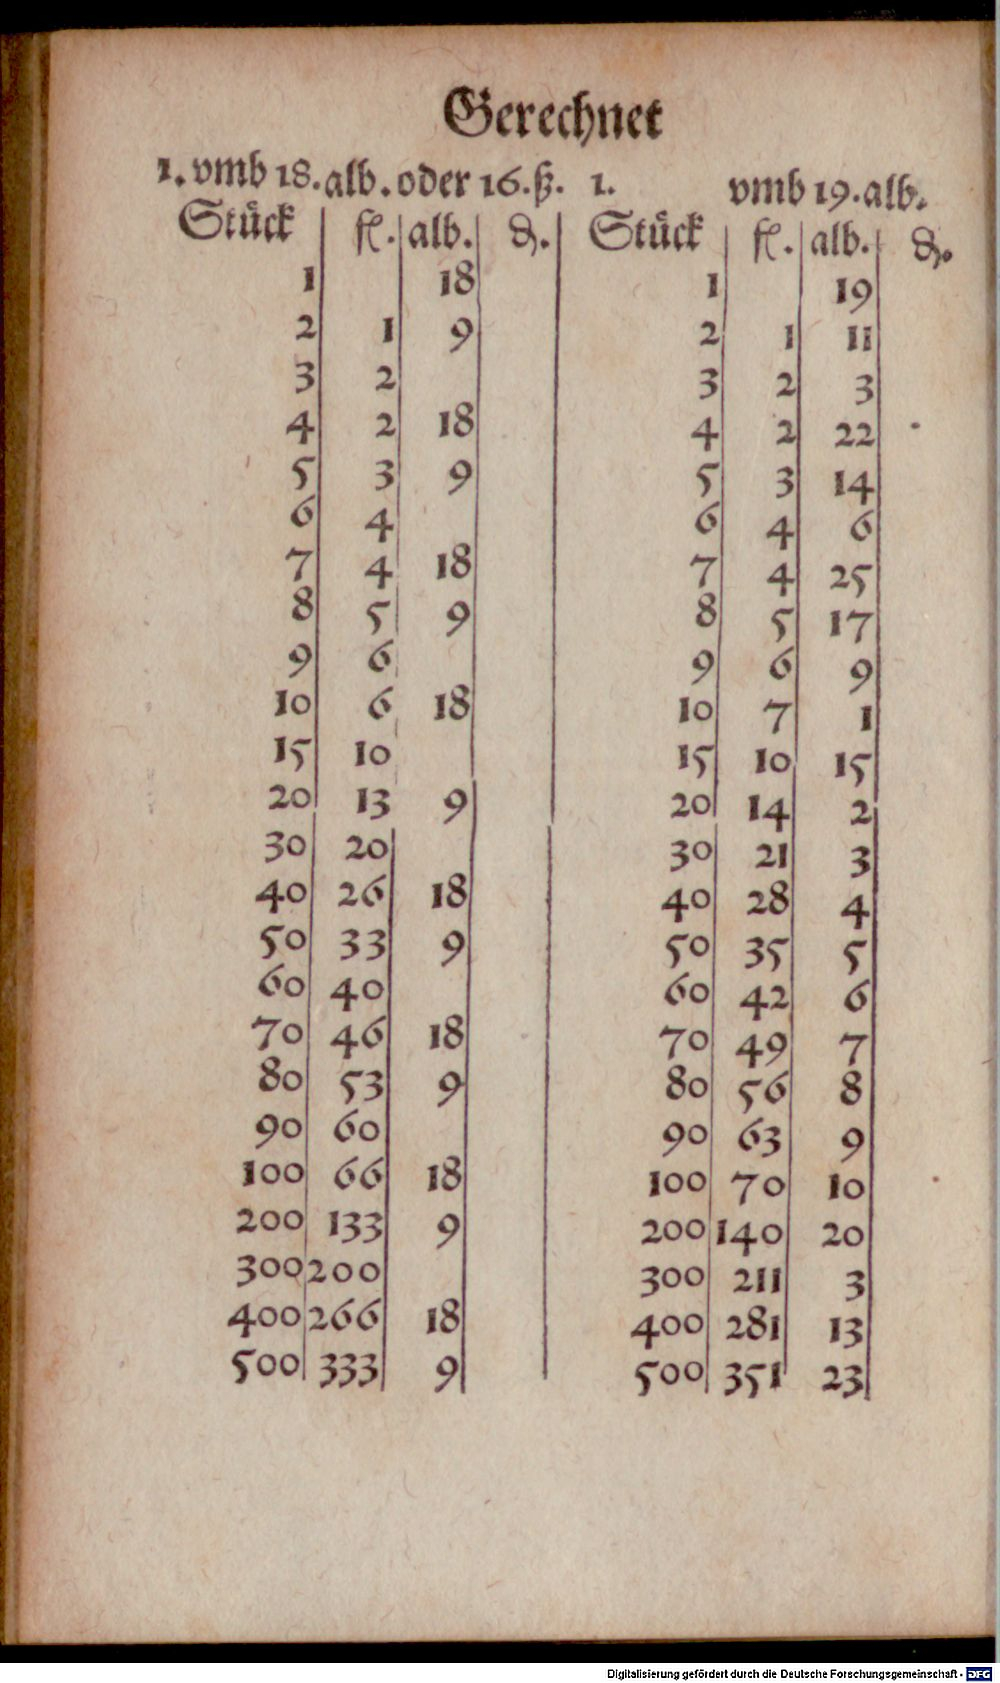 Gerechnet
1. vmb 18. alb. oder 16. ß. 1. vmb 19. alb.
Stuͤck fl. alb. ₰. Stuͤck fl. alb. ₰.
1 18 1 19
2 1 9 2 1 11
3 2 3 2 3
4 2 18 4 2 22
5 3 9 5 3 14
6 4 6 4 6
7 4 18 7 4 25
8 5 9 8 5 17
9 6 9 6 9
10 6 18 10 7 1
15 10 15 10 15
20 13 9 20 14 2
30 20 30 21 3
40 26 18 40 28 4
50 33 9 50 35 5
60 40 60 42 6
70 46 18 70 49 7
80 53 9 80 56 8
90 60 90 63 9
100 66 18 100 70 10
200 133 9 200 140 20
300 200 300 211 3
400 266 18 400 281 13
500 333 9 500 351 23
Digitalisierung gefördert durch die Deutsche Forschungsgemeinschaft - DFG